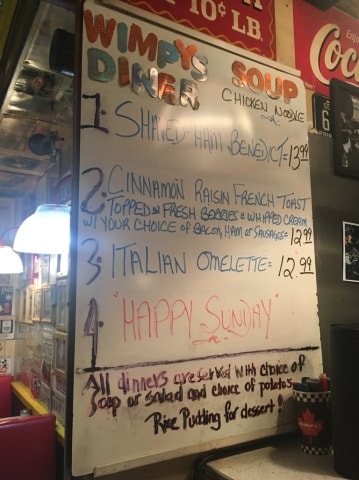 10¢ LB.
Enjoy
Coc
WIMPY'S DINER
SOUP
CHICKEN NOODLE
6
1. SHAVED HAM BENEDICT = 13.99
2. CINNAMON RAISIN FRENCH TOAST
TOPPED w/ FRESH BERRIES & WHIPPED CREAM
w/ YOUR CHOICE OF BACON, HAM OR SAUSAGES = 12.99
3. ITALIAN OMELETTE = 12.99
4. "HAPPY SUNDAY"
All dinners are served with choice of
Soup or salad and choice of potatoes
Rice Pudding for dessert!